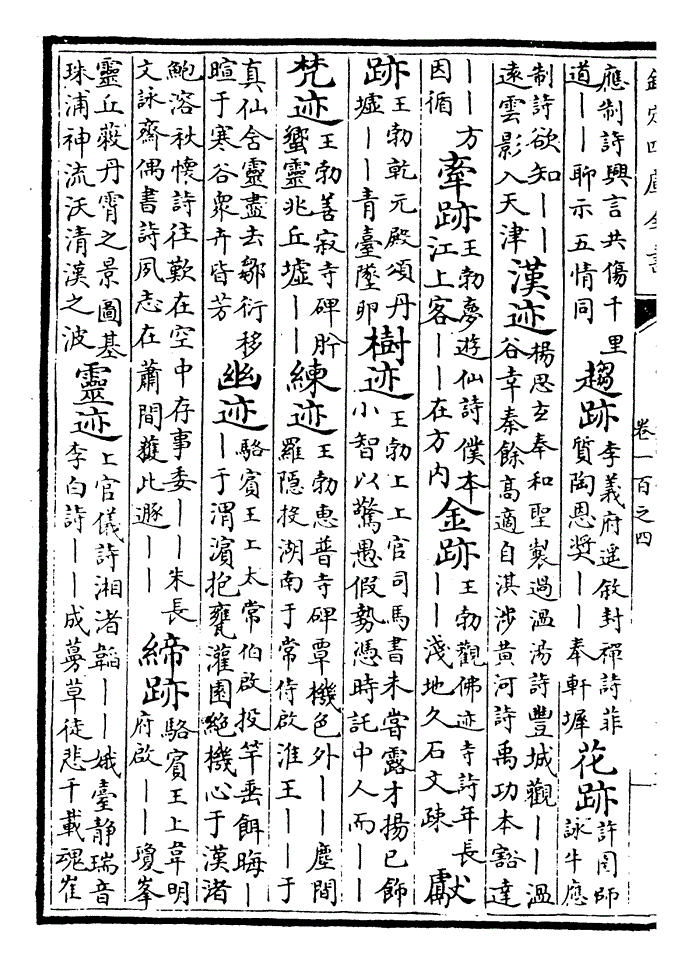 欽定四庫全書
卷一百之四
應制詩興言共傷千里
道——聊示五情同
趨跡
李義府遥敘封禪詩菲
質陶恩奨——奉軒墀
花跡
許圉師
詠牛應
制詩欲知——
遠雲影入天津
漢迹
楊思玄奉和聖製過温湯詩豐城觀——温
谷幸秦餘高適自淇涉黄河詩禹功本豁達
——方
因循
牽跡
王勃夢遊仙詩僕本
江上客——在方内
金跡
王勃觀佛迹寺詩年長
——淺地久石文疎
獻
跡
王勃乾元殿頌丹
墟——青臺墜卵
樹迹
王勃上上官司馬書未嘗露才揚己飾
小智以驚愚假勢憑時託中人而——
梵迹
王勃善寂寺碑肹
蠁靈兆丘墟——
練迹
王勃惠普寺碑覃機色外——塵間
羅隱投湖南于常侍啟淮王——于
真仙舍靈盡去鄒衍移
暄于寒谷衆卉皆芳
幽迹
駱賓王上太常伯啟投竿垂餌晦—
—于渭濱抱甕灌園絶機心于漢渚
鮑溶秋懷詩往歎在空中存事委——朱長
文詠齋偶書詩夙志在蕭間 此遯——
締跡
駱賓王上韋明
府啟——瓊峯
靈丘薮丹霄之景圖基
珠浦神流沃清漢之波
靈迹
上官儀詩湘渚韜——娥臺静瑞音
李白詩——成蔓草徒悲千載魂崔